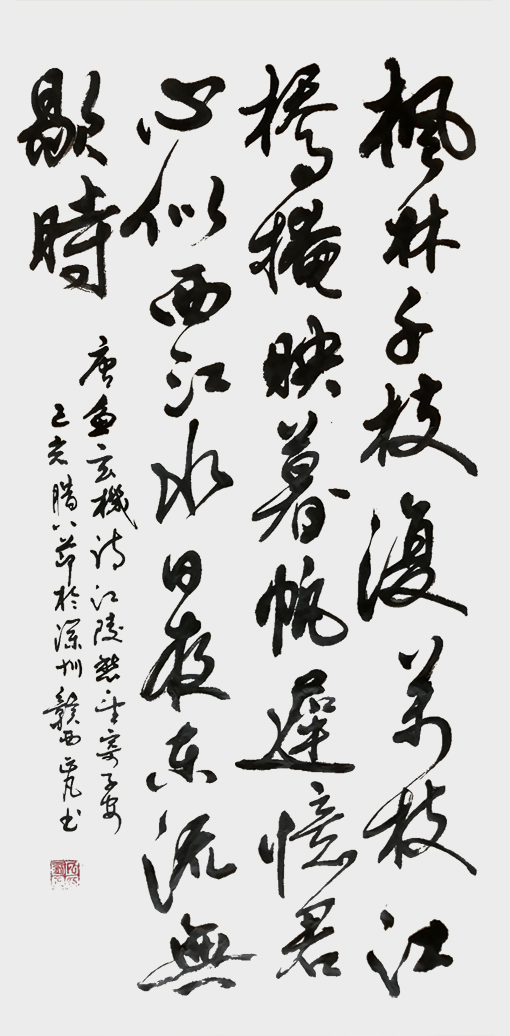 楓林千枝復萬枝江
橋掩映暮帆遲憶君
心似西江水日夜東流無
歇時
唐魚玄機詩江陵愁望寄子安
己亥腊八节於深圳贛西凡书